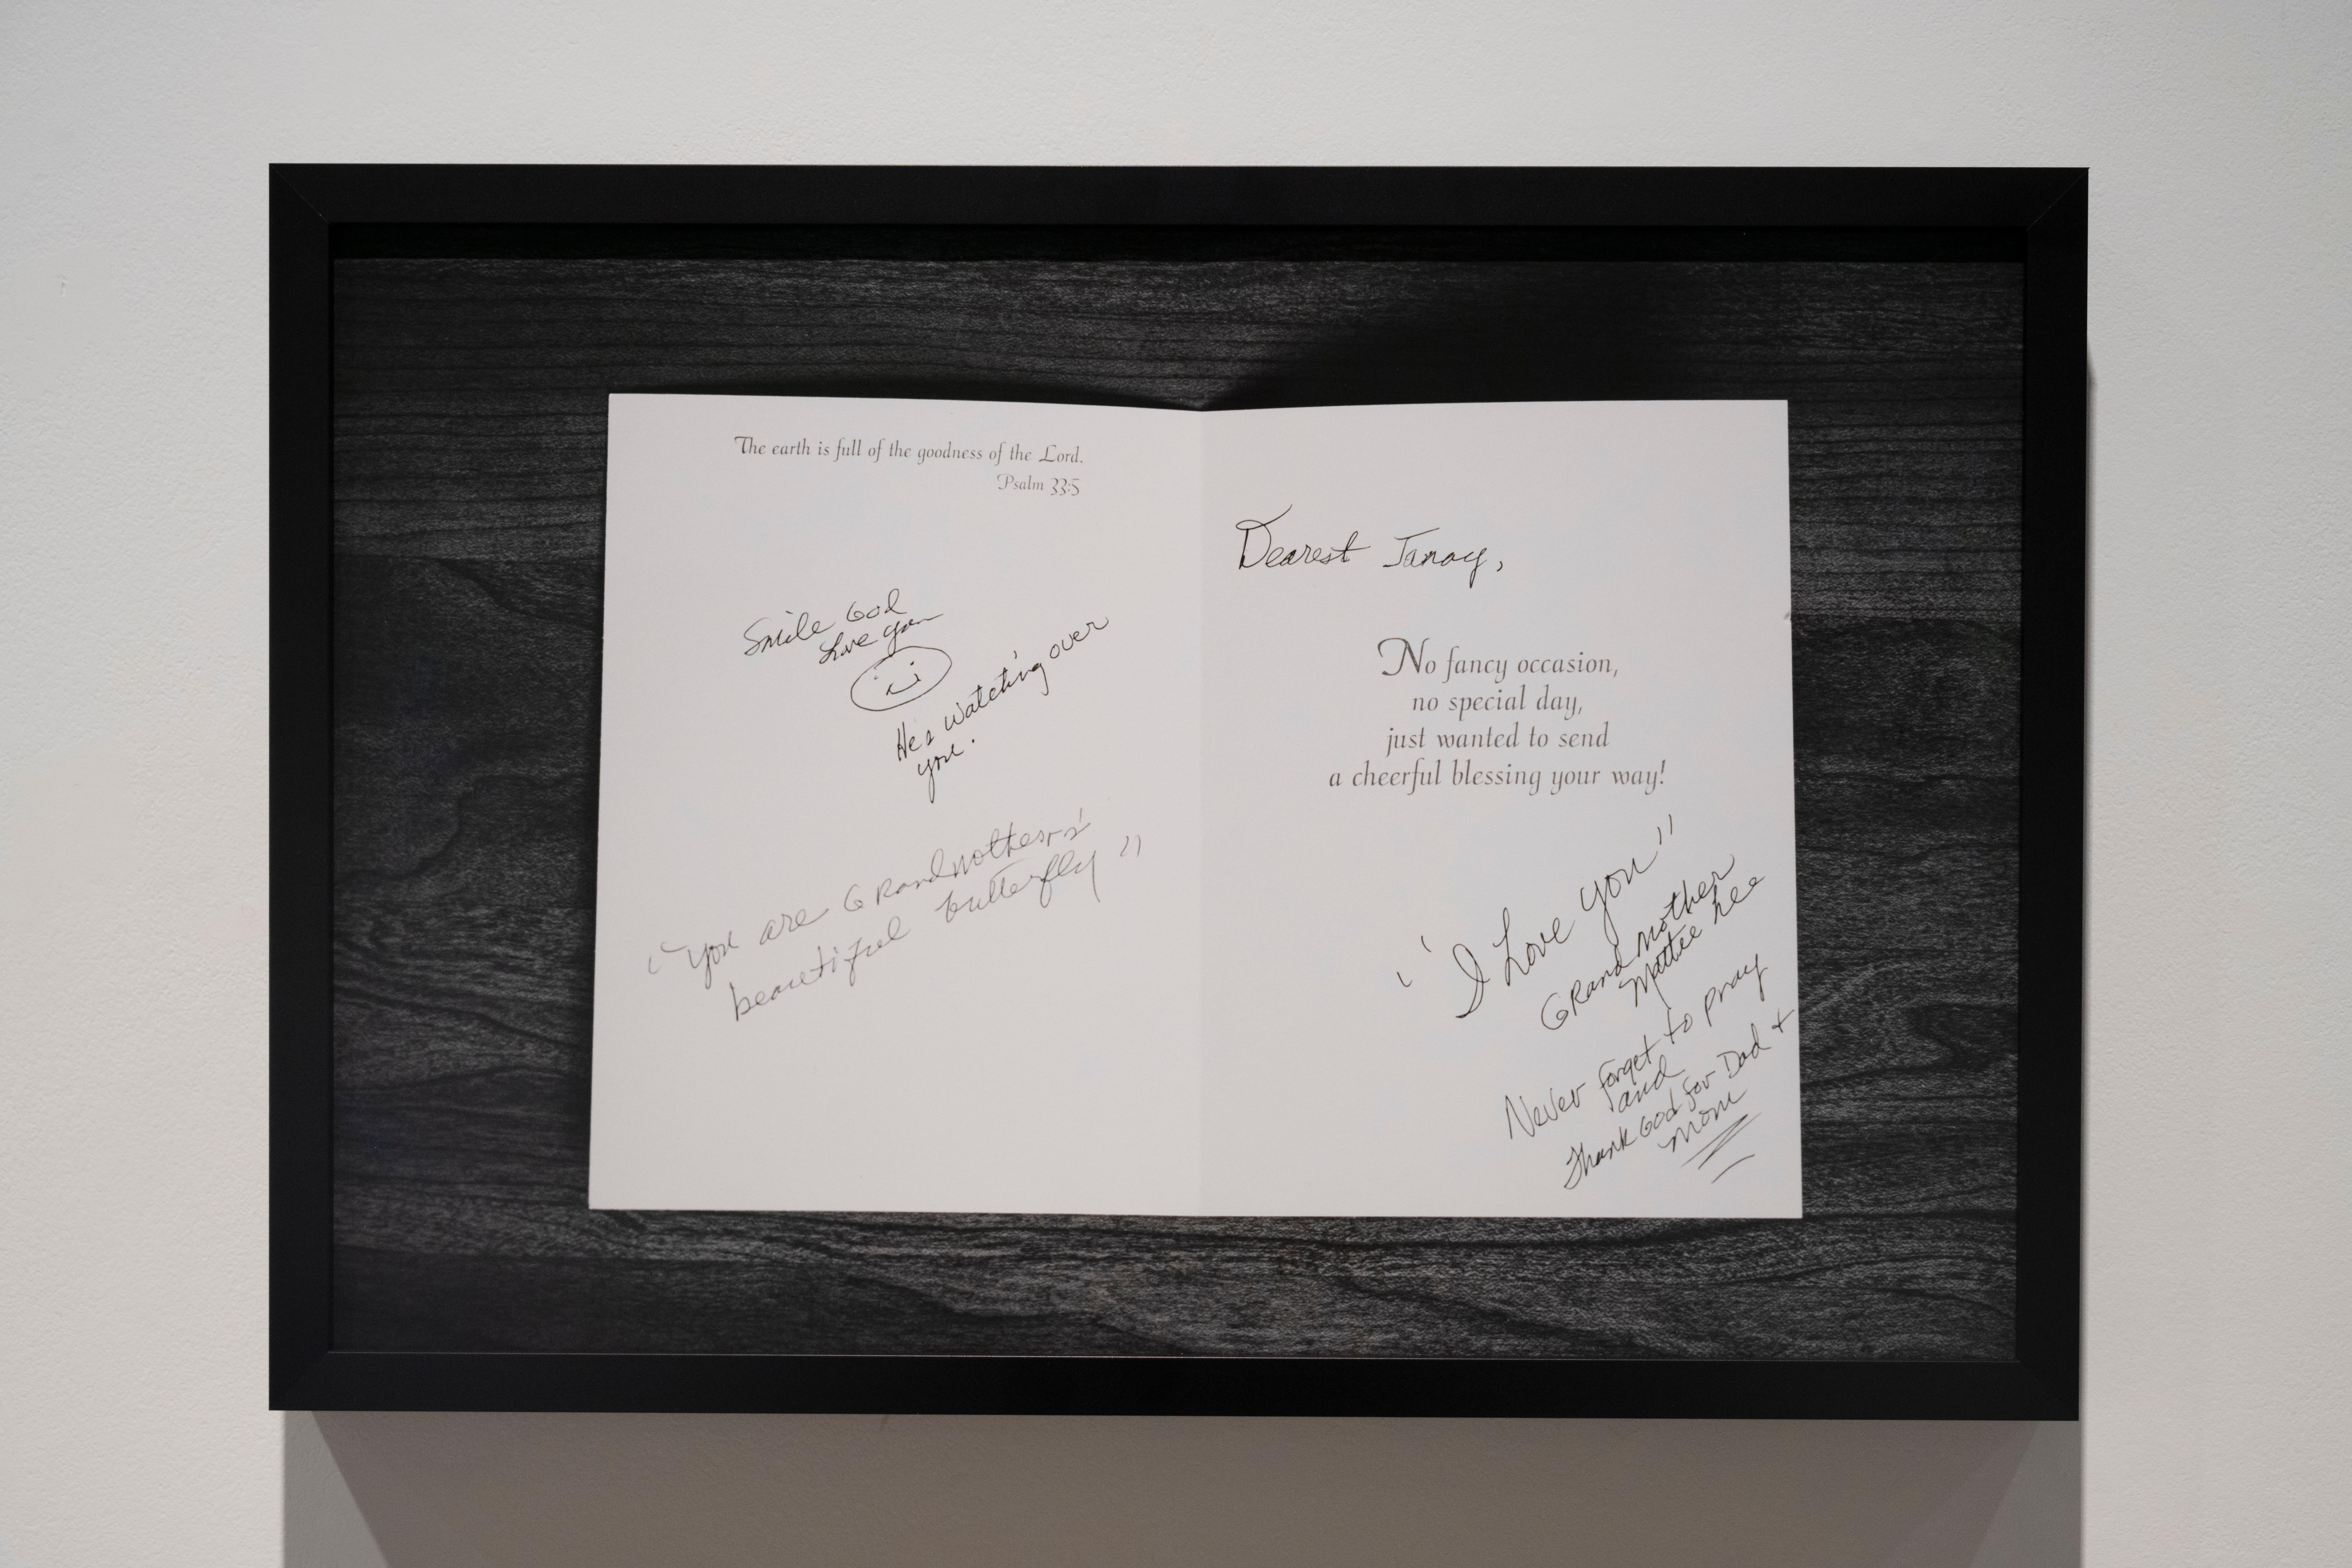 The earth is full of the goodness of the Lord.
Psalm 33:5
Smile God
Love you
He's watching over
you.
"You are Grandmother's'
beautiful butterfly"
Dearest Janay,
No fancy occasion,
no special day,
just wanted to send
a cheerful blessing your way!
"I Love you"
Grandmother
Mattie
Never forget to pray
and
Thank God for Dad +
Mom